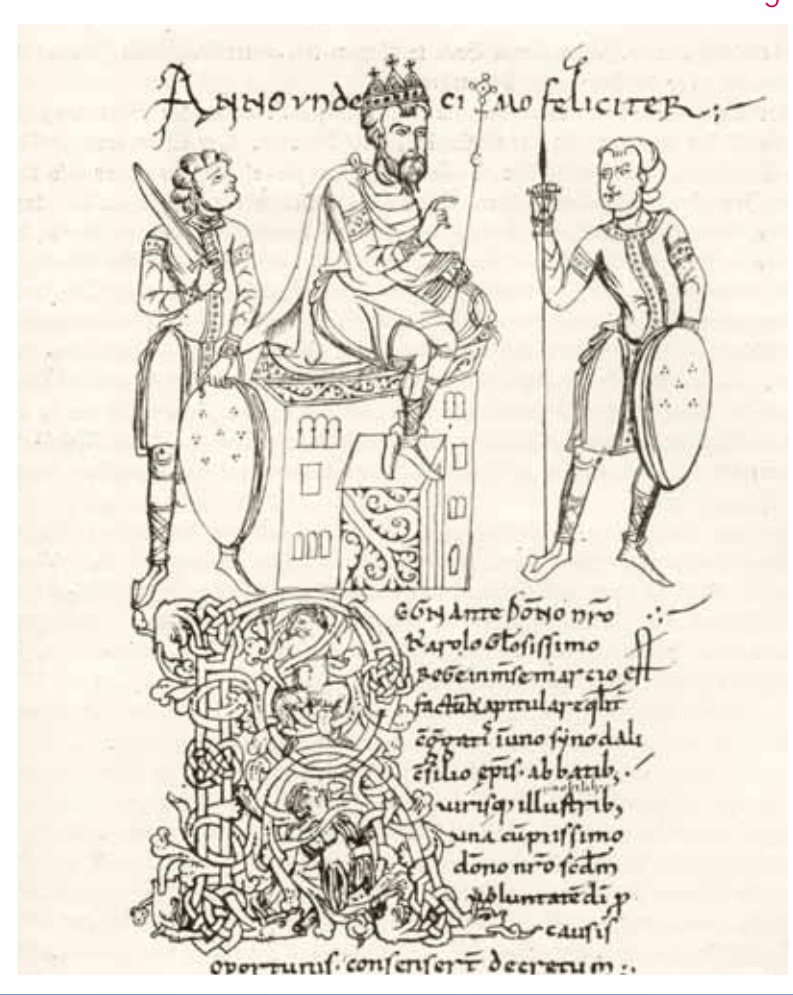 ANNO VNDECIMO feLICITER
EGÑANTE DOÑO nr̄o
KaRolo GLosissimo
REGE INMSE MARCIO EST
factū Kapitulare qlit̄
c̄gḡati īuno synodali
c̄silio epīs. abbatib;
uirisq illustrib;
una cū piissimo
dōno nr̄o sc̄dm
uoluntatē dī p
causis
oportunis. consensert̄ decretum